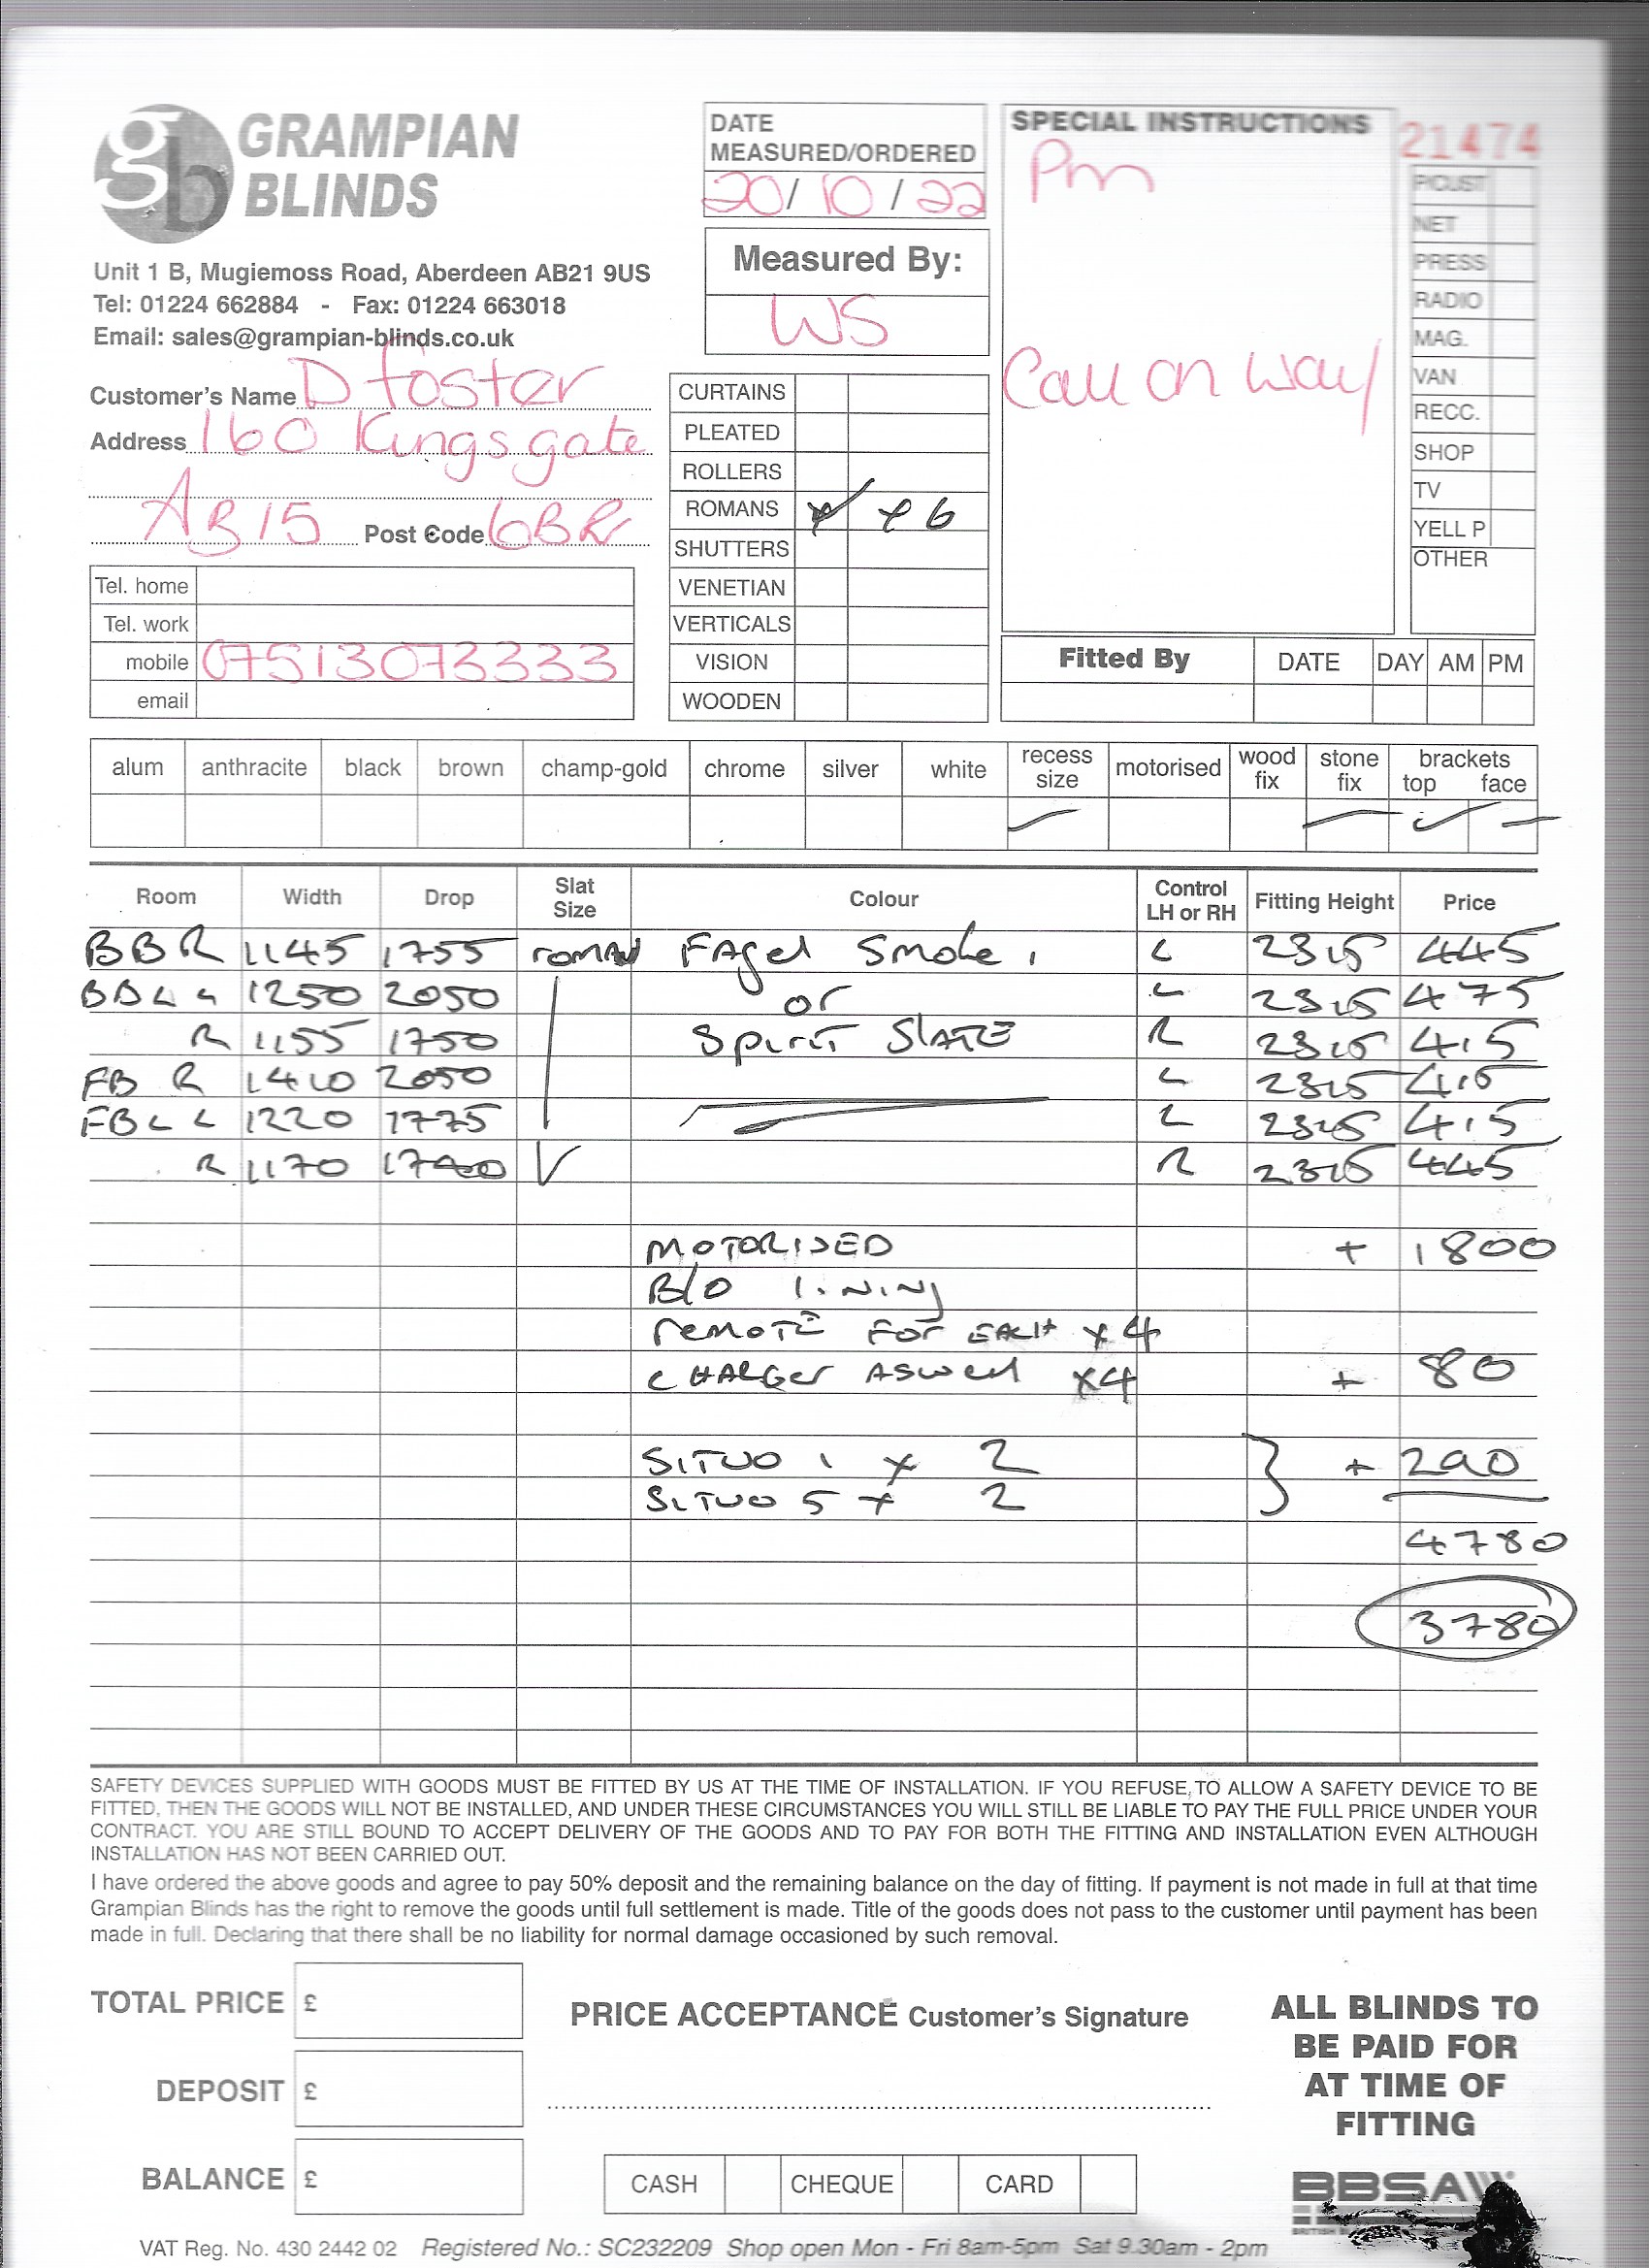 GRAMPIAN
BLINDS
Unit 1 B, Mugiemoss Road, Aberdeen AB21 9US
Tel: 01224 662884 - Fax: 01224 663018
Email: sales@grampian-blinds.co.uk
DATE
MEASURED/ORDERED
20/10/22
Measured By:
WS
SPECIAL INSTRUCTIONS
Pm
Call on way
21474
P/CUST
NET
PRESS
RADIO
MAG.
VAN
RECC.
SHOP
TV
YELL P
OTHER
Customer's Name D foster
Address 160 Kingsgate
AB15 Post Code 6BR
Tel. home
Tel. work
mobile 07513073333
email
CURTAINS
PLEATED
ROLLERS
ROMANS x 6
SHUTTERS
VENETIAN
VERTICALS
VISION
WOODEN
Fitted By DATE DAY AM PM
alum anthracite black brown champ-gold chrome silver white recess size motorised wood fix stone fix brackets top face
Room Width Drop Slat Size Colour Control LH or RH Fitting Height Price
BBR 1145 1755 roman Fagel Smoke, L 2315 445
BBL L 1250 2050 or L 2315 475
R 1155 1750 Spirit SLATE R 2315 415
FB R 1410 2050 L 2315
FBL L 1220 1775 L 2315 415
R 1170 R 2315 445
MOTORISED + 1800
B/O lining
remote for each x4
CHARGER ASWELL x4 + 80
SITUO 1 x 2 + 290
SITUO 5 x 2
4780
3780
SAFETY DEVICES SUPPLIED WITH GOODS MUST BE FITTED BY US AT THE TIME OF INSTALLATION. IF YOU REFUSE, TO ALLOW A SAFETY DEVICE TO BE
FITTED, THEN THE GOODS WILL NOT BE INSTALLED, AND UNDER THESE CIRCUMSTANCES YOU WILL STILL BE LIABLE TO PAY THE FULL PRICE UNDER YOUR
CONTRACT. YOU ARE STILL BOUND TO ACCEPT DELIVERY OF THE GOODS AND TO PAY FOR BOTH THE FITTING AND INSTALLATION EVEN ALTHOUGH
INSTALLATION HAS NOT BEEN CARRIED OUT.
I have ordered the above goods and agree to pay 50% deposit and the remaining balance on the day of fitting. If payment is not made in full at that time
Grampian Blinds has the right to remove the goods until full settlement is made. Title of the goods does not pass to the customer until payment has been
made in full. Declaring that there shall be no liability for normal damage occasioned by such removal.
TOTAL PRICE £
DEPOSIT £
BALANCE £
PRICE ACCEPTANCE Customer's Signature
CASH CHEQUE CARD
ALL BLINDS TO
BE PAID FOR
AT TIME OF
FITTING
BBSA
VAT Reg. No. 430 2442 02 Registered No.: SC232209 Shop open Mon - Fri 8am-5pm Sat 9.30am - 2pm